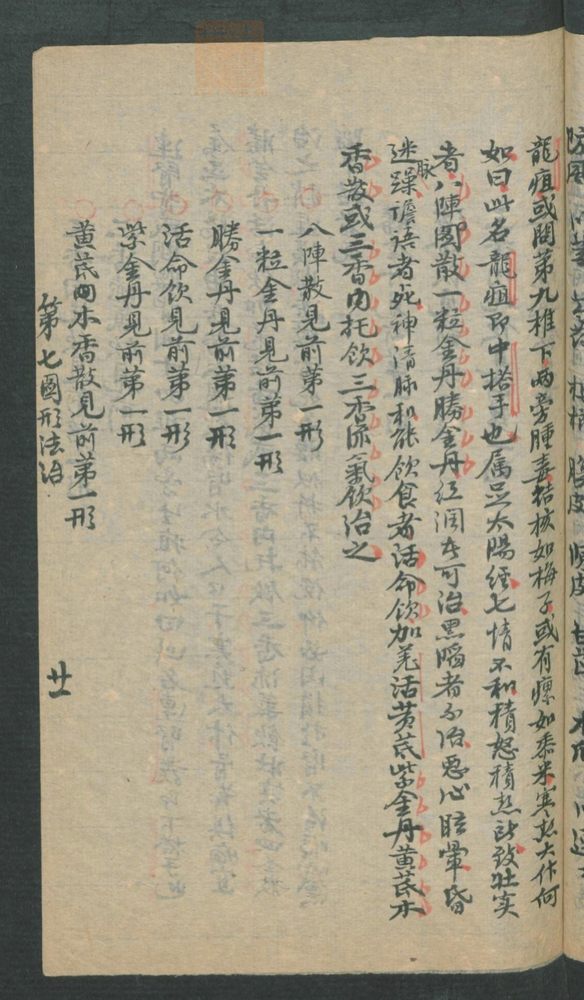 龍疽或問第九椎下兩旁腫毒結核如梅子或有瘰如黍米寒熱大作何
如曰此名龍疽即中搭手也属足太陽經七情不和積怒積熱所致壮实
者八陣图散一粒金丹勝金丹红润者可治黑陷者不治恶心眩暈昏
迷躁脉譫语者死神清脉和能飲食者活命飲加羌活黄芪紫金丹黄芪木
香散或三香内托飲三香流氣飲治之
八陣散見前第一形
一粒金丹見前第一形
勝金丹見前第一形
活命飲見前第一形
紫金丹見前第一形
黄芪内木香散見前第一形
第七图形法治
廿一